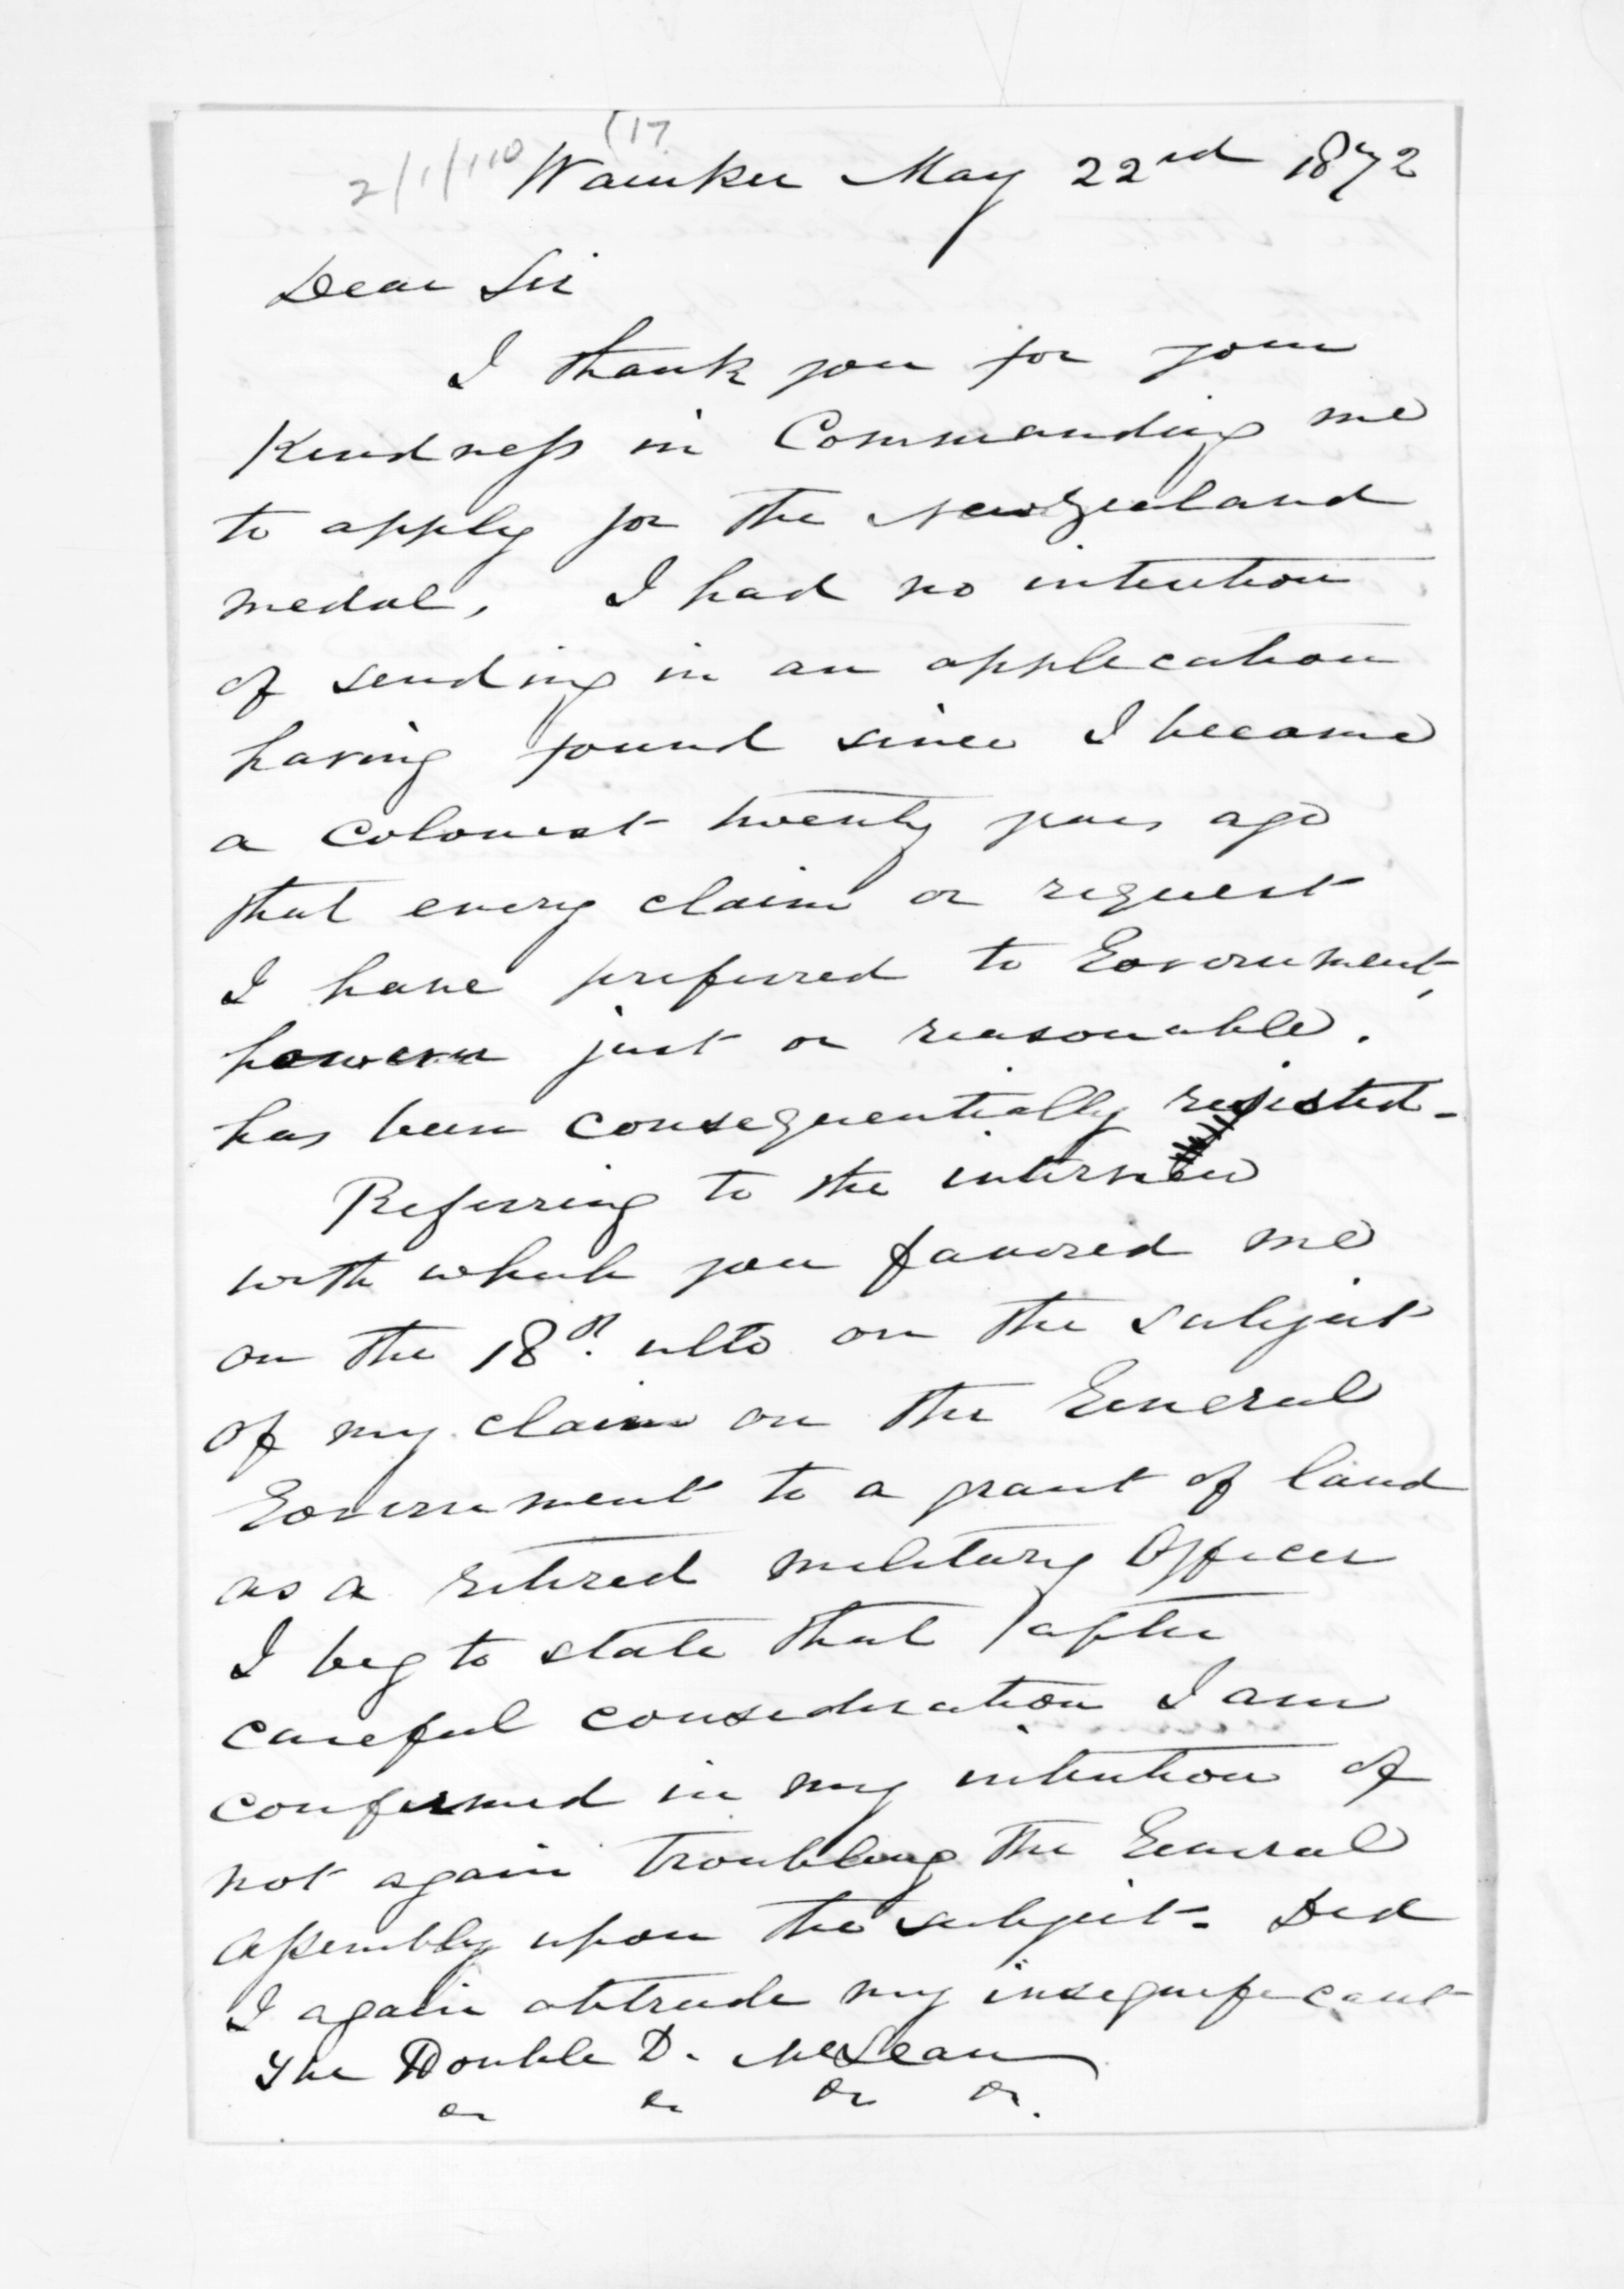 2/1/110 (17
Waiuku May 22nd 1872
Dear Sir
I thank you for your
Kindness in Commanding me
to apply for the New Zealand
medal, I had no intention
of sending in an application
having found since I became
a Colonist twenty years ago
that every claim or request
I have preferred to Government,
however just or reasonable.
has been consequentially rejected -
Referring to the interview
with which you favored me
on the 18th. ulto on the subject
of my claim on the General
Government to a grant of land
as a retired military Officer
I beg to state that after
careful consideration I am
confirmed in my intention of
not again troubling the General
Assembly upon the subject - Did
I again obtrude my insignificant
The Honble D. McLean
&c &c &c &c.